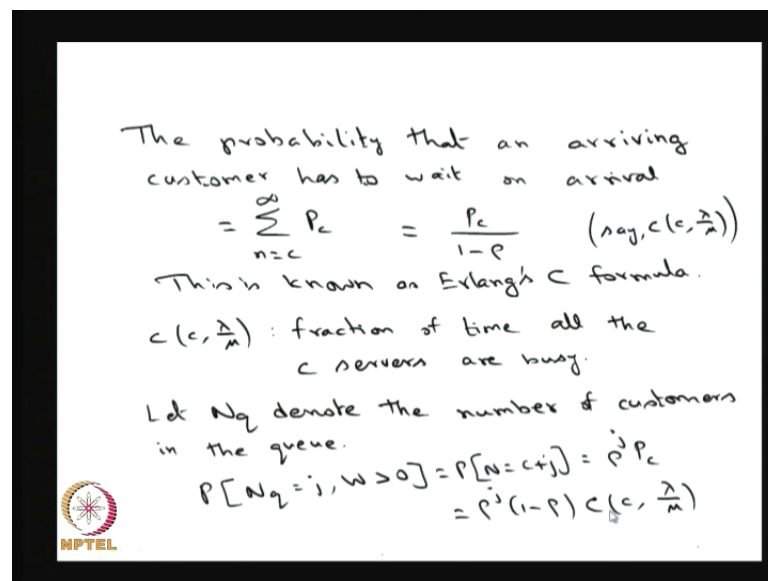 The probability that an arriving
customer has to wait on arrival
= ∞∑n=c Pc = Pc/(1-ρ) (say, C(c, λ/μ))
This is known as Erlang's C formula.
C(c, λ/μ) : fraction of time all the
c servers are busy.
Let Nq denote the number of customers
in the queue.
P[Nq = j, W > 0] = P[N = c+j] = ρ^j Pc
= ρ^j (1-ρ) C(c, λ/μ)
NPTEL